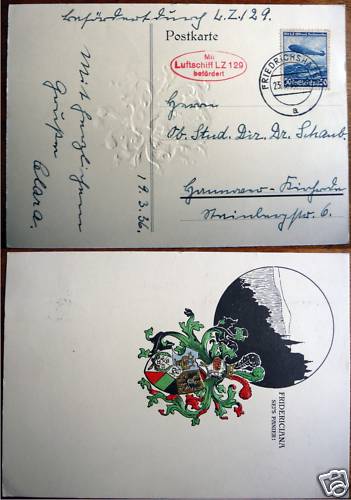 befördert durch L.Z. 129.
Postkarte
Mit
Luftschiff LZ 129
befördert
FRIEDRICHSHA
23.
a
50
Mit herzlichem
Grusse
Clara.
19.3.36.
Herrn
Ob. Stud. Dir. Dr. Schaub.
Hannover-Kirchrode
Steinbergstr. 6.
FRIDERICIANA
SEI'S PANIER!
ebY